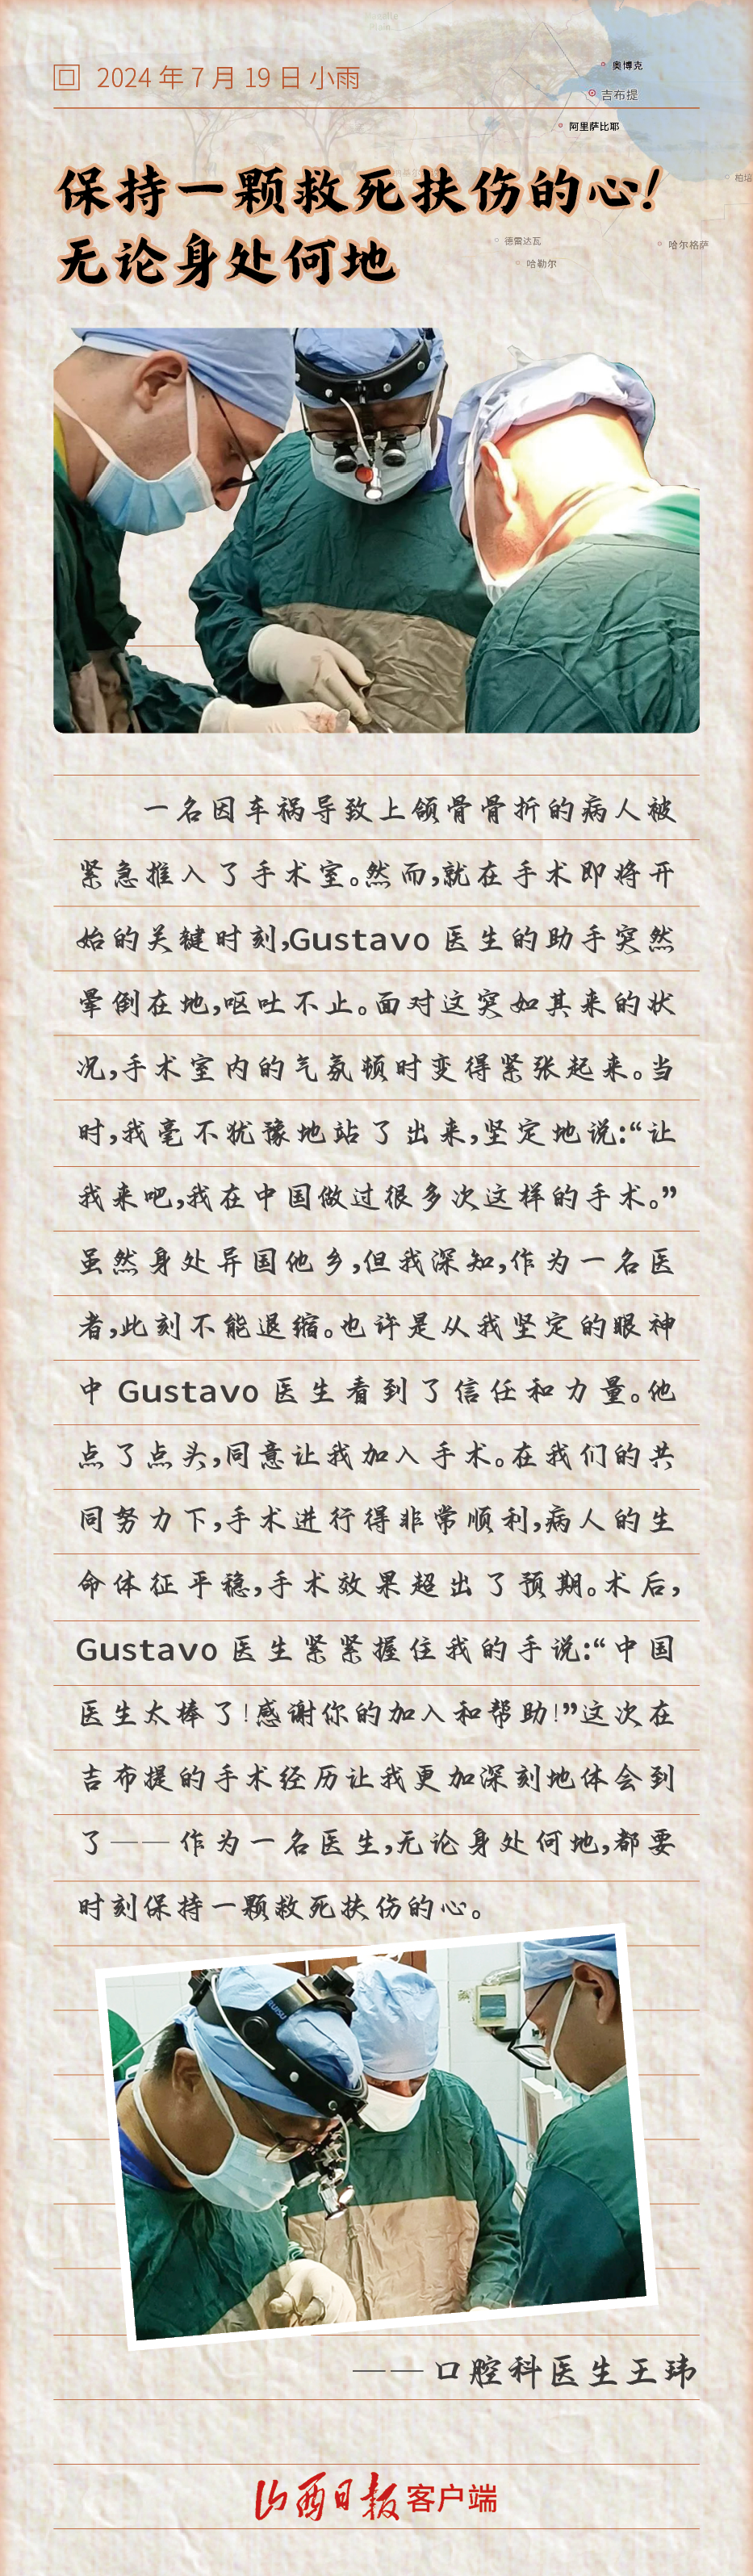 2024 年 7 月 19 日 小雨
奥博克
吉布提
阿里萨比耶
保持一颗救死扶伤的心！
无论身处何地
德雷达瓦
哈尔格萨
哈勒尔
一名因车祸导致上颌骨骨折的病人被
紧急推入了手术室。然而,就在手术即将开
始的关键时刻,Gustavo 医生的助手突然
晕倒在地,呕吐不止。面对这突如其来的状
况,手术室内的气氛顿时变得紧张起来。当
时,我毫不犹豫地站了出来,坚定地说:“让
我来吧,我在中国做过很多次这样的手术。”
虽然身处异国他乡,但我深知,作为一名医
者,此刻不能退缩。也许是从我坚定的眼神
中 Gustavo 医生看到了信任和力量。他
点了点头,同意让我加入手术。在我们的共
同努力下,手术进行得非常顺利,病人的生
命体征平稳,手术效果超出了预期。术后,
Gustavo 医生紧紧握住我的手说:“中国
医生太棒了!感谢你的加入和帮助!”这次在
吉布提的手术经历让我更加深刻地体会到
了——作为一名医生,无论身处何地,都要
时刻保持一颗救死扶伤的心。
——口腔科医生王玮
山西日报客户端